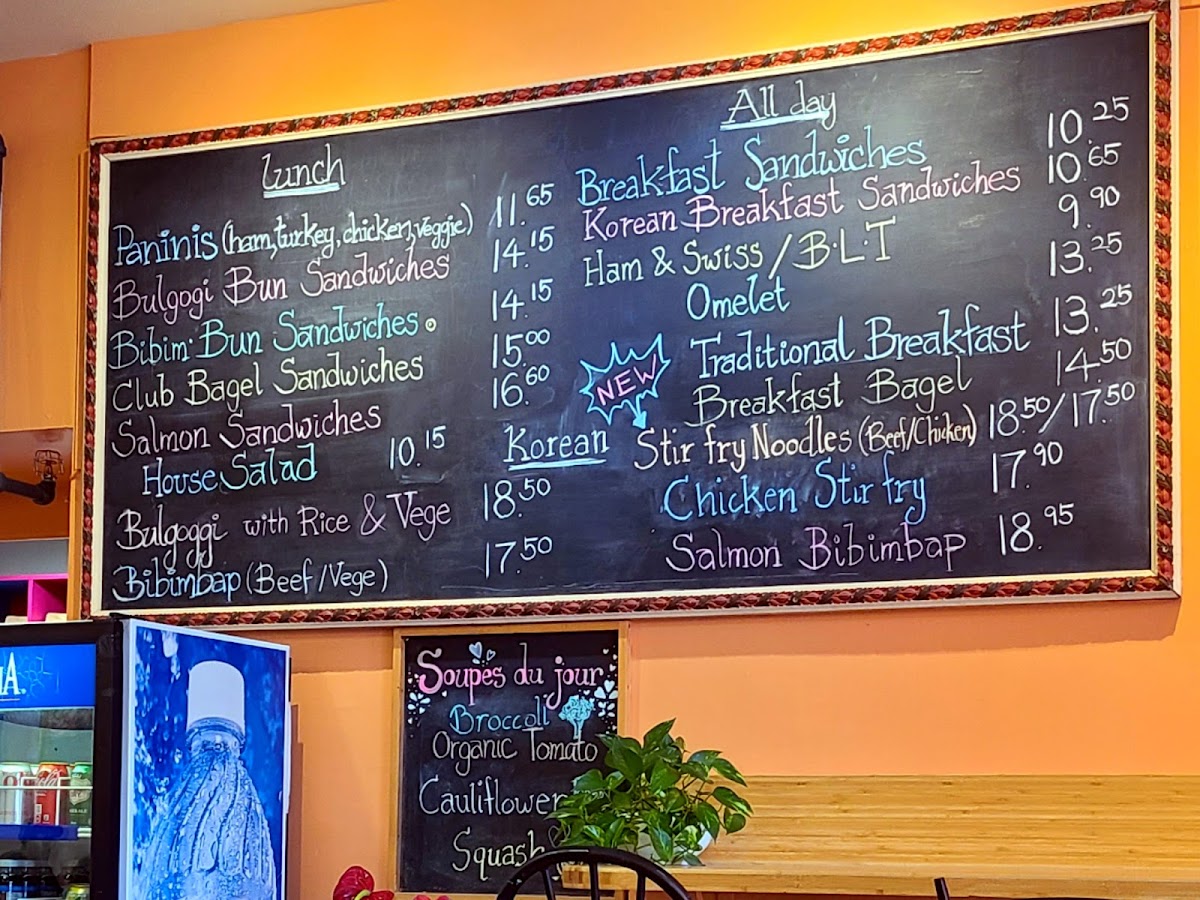 Lunch
Paninis (ham, turkey, chicken, veggie) 11.65
Bulgogi Bun Sandwiches 14.15
Bibim·Bun Sandwiches 14.15
Club Bagel Sandwiches 15.00
Salmon Sandwiches 16.60
House Salad 10.15
Korean
Bulgoggi with Rice & Vege 18.50
Bibimbap (Beef/Vege) 17.50
All day
Breakfast Sandwiches 10.25
Korean Breakfast Sandwiches 10.65
Ham & Swiss / B·L·T 9.90
Omelet 13.25
Traditional Breakfast 13.25
Breakfast Bagel 14.50
NEW
Stir fry Noodles (Beef/Chicken) 18.50/17.50
Chicken Stir fry 17.90
Salmon Bibimbap 18.95
Soupes du jour
Broccoli
Organic Tomato
Cauliflower
Squash